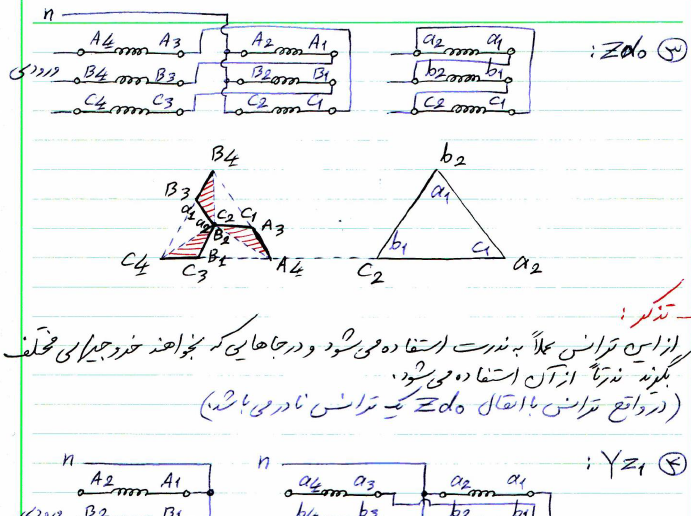 ③ Zd0 :
n
A4 A3 A2 A1 a2 a1
ورودی B4 B3 B2 B1 b2 b1
C4 C3 C2 C1 C2 C1
B4 b2
B3 a1
a1 a2 C2 C1 A3
B2
C4 C3 B1 A4 C2 b1 C1 a2
- تذکر :
از این ترانس عملاً به ندرت استفاده می‌شود و در جاهایی که بخواهند خروجیهایی مختلف
بگیرند ندرتاً از آن استفاده می‌شود.
(در واقع ترانس با اتصال Zd0 یک ترانس نادر می‌باشد.)
④ Yz1 :
n n
A2 A1 a4 a3 a2 a1
ورودی B2 B1 b4 b3 b2 b1